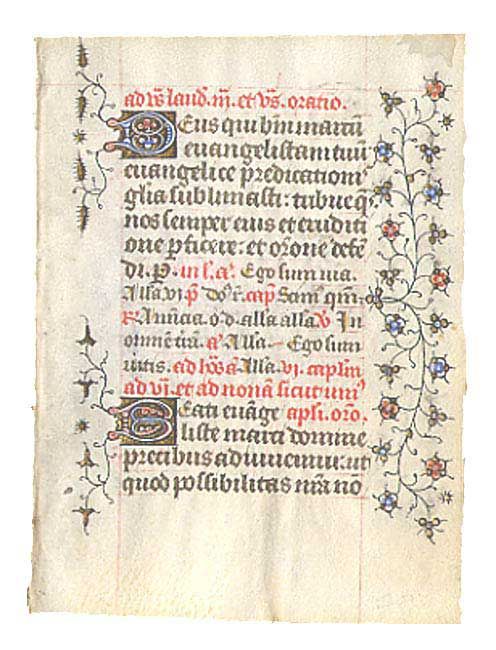 ad vs laud. m. et vs. oratio.
Deus qui bm marcū
euangelistam tuū
euangelice predicationⁱ
gl̄ia sublimasti: tribue q̄s
nos semper eius et eruditi
one ꝓficere: et or̄one defē
di. P. in l. a. Ego sum uia.
Alla. vi. p̄ Scām
R Annūcia. o. d. alla alla. v In
omnē trā. a. Alla. Ego sum
uitis. ad a. Alla. vi. capl̄m
ad vi. et ad nonā sicut un
Beati euāge apli. oro.
liste marci domine
precibus adiuuemur: ut
quod possibilitas nr̄a nō